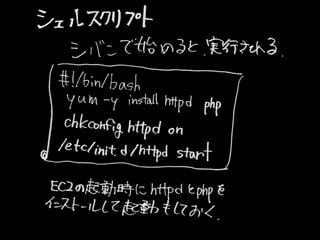 シェルスクリプト
シバンで始めると、実行される。
#!/bin/bash
yum -y install httpd php
chkconfig httpd on
/etc/init.d/httpd start
EC2の起動時にhttpdとphpを
インストールして起動もしておく。